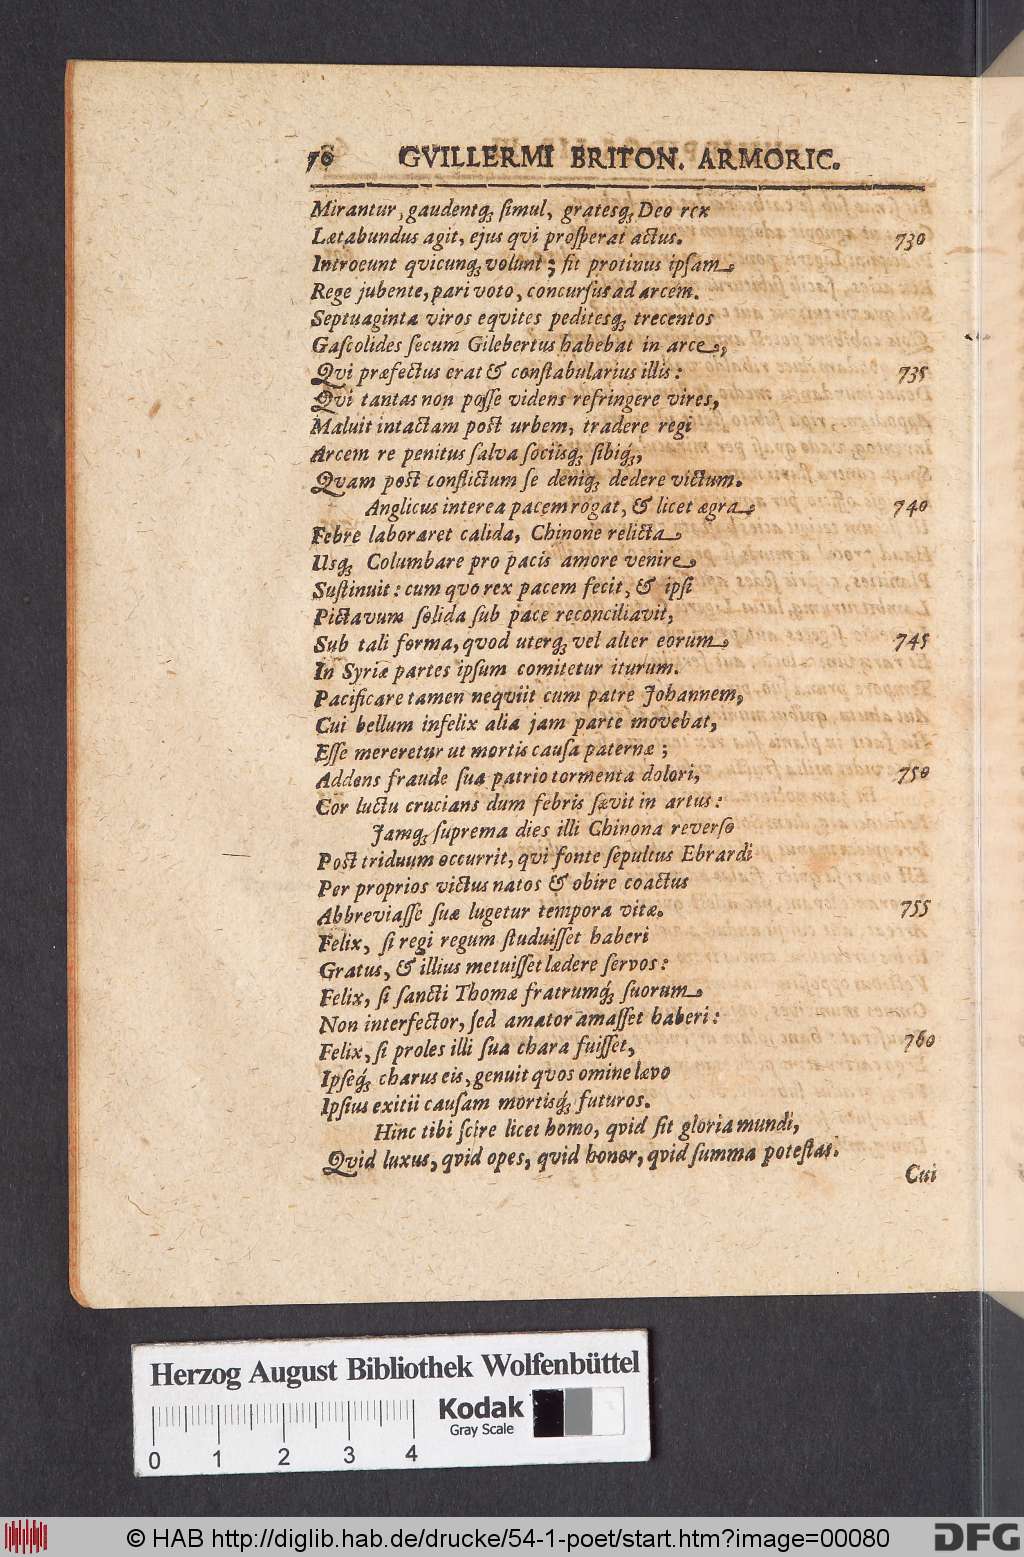 70 GVILLERMI BRITON. ARMORIC.
Mirantur, gaudentq; ſimul, gratesq; Deo rex
Lætabundus agit, ejus qvi proſperat actus. 730
Introeunt qvicunq; volunt; fit protinus ipſam
Rege jubente, pari voto, concurſus ad arcem.
Septuaginta viros eqvites peditesq; trecentos
Gaſcolides ſecum Gilebertus habebat in arce,
Qvi præfectus erat & conſtabularius illis: 735
Qvi tantas non poſſe videns refringere vires,
Maluit intactam poſt urbem, tradere regi
Arcem re penitus ſalva ſociisq; ſibiq́;,
Qvam poſt conflictum ſe deniq; dedere victum.
Anglicus interea pacem rogat, & licet ægra 740
Febre laboraret calida, Chinone relicta
Uſq; Columbare pro pacis amore venire
Suſtinuit: cum qvo rex pacem fecit, & ipſi
Pictavum ſolida ſub pace reconciliavit,
Sub tali forma, qvod uterq; vel alter eorum 745
In Syriæ partes ipſum comitetur iturum.
Pacificare tamen neqviit cum patre Johannem,
Cui bellum infelix alia jam parte movebat,
Eſſe mereretur ut mortis cauſa paternæ;
Addens fraude ſua patrio tormenta dolori, 750
Cor luctu crucians dum febris ſævit in artus:
Jamq; ſuprema dies illi Chinona reverſo
Poſt triduum occurrit, qvi fonte ſepultus Ebrardi
Per proprios victus natos & obire coactus
Abbreviaſſe ſuæ lugetur tempora vitæ. 755
Felix, ſi regi regum ſtuduiſſet haberi
Gratus, & illius metuiſſet lædere ſervos:
Felix, ſi ſancti Thomæ fratrumq́; ſuorum
Non interfector, ſed amator amaſſet haberi:
Felix, ſi proles illi ſua chara fuiſſet, 760
Ipſeq́; charus eis, genuit qvos omine lævo
Ipſius exitii cauſam mortisq́; futuros.
Hinc tibi ſcire licet homo, qvid ſit gloria mundi,
Qvid luxus, qvid opes, qvid honor, qvid ſumma poteſtas.
Cui
Herzog August Bibliothek Wolfenbüttel
Kodak
Gray Scale
0 1 2 3 4
© HAB http://diglib.hab.de/drucke/54-1-poet/start.htm?image=00080
DFG